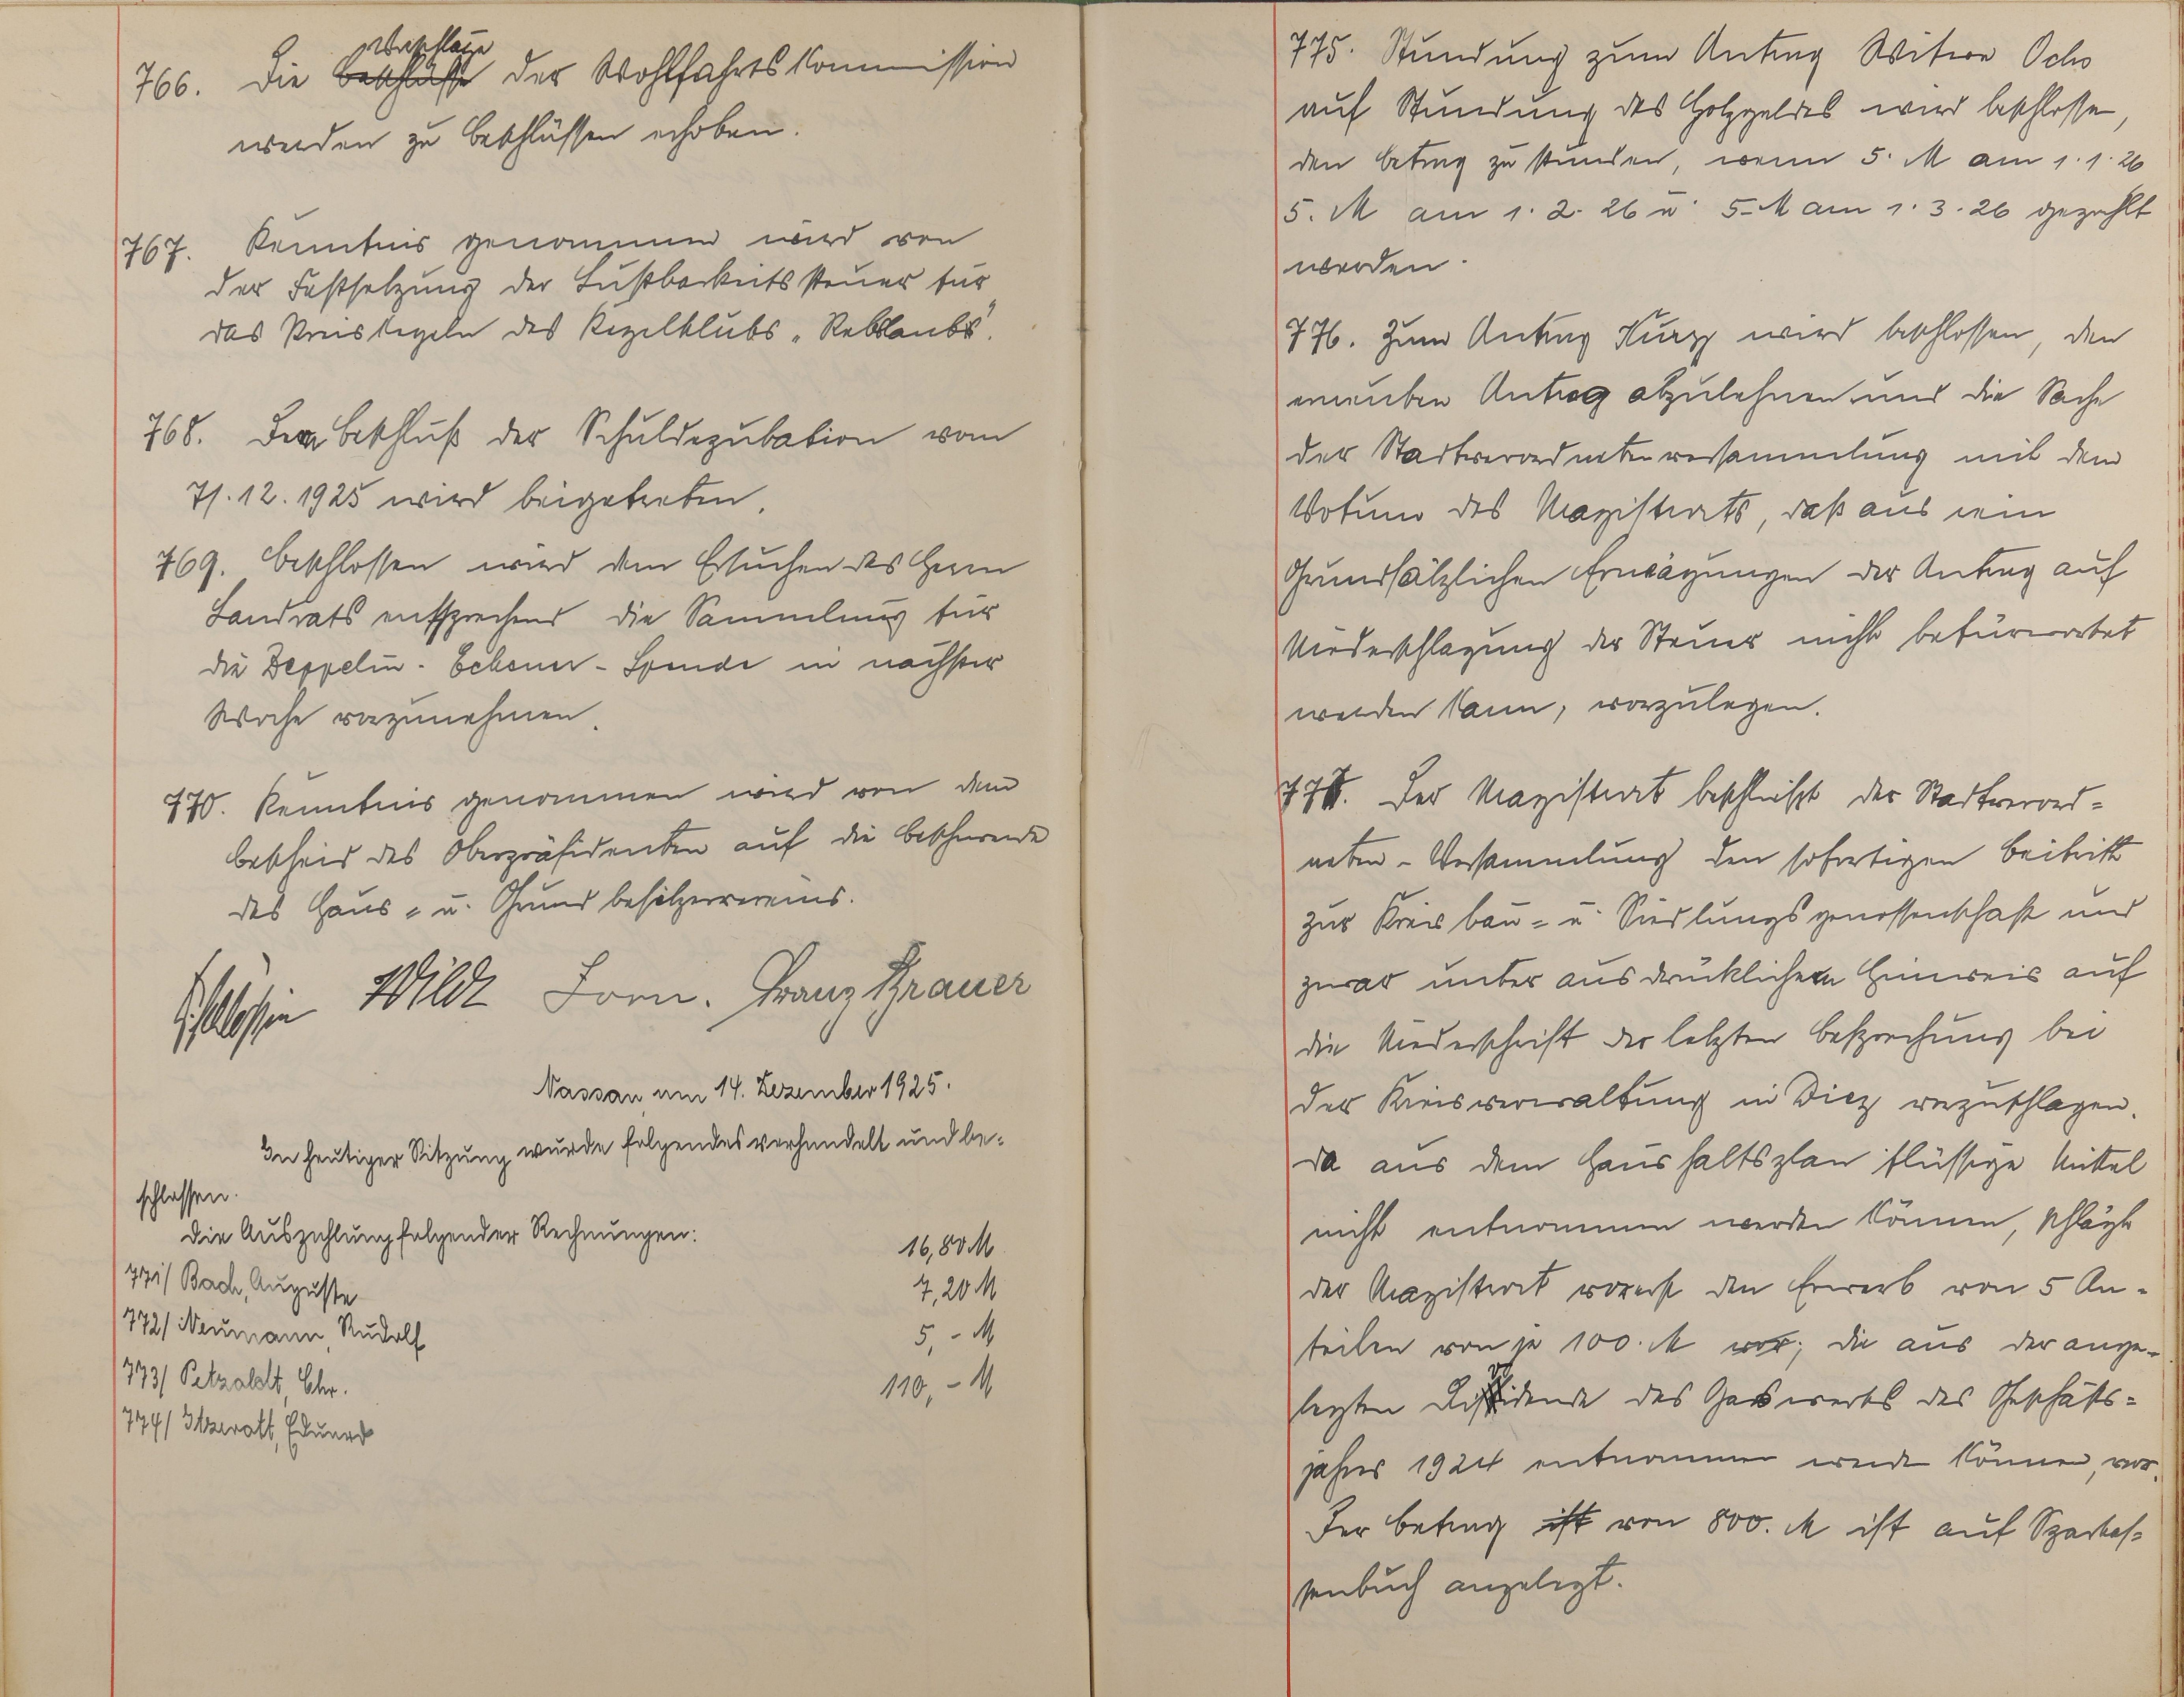 766. Die Beschlüsse Vorschläge der Wohlfahrtskommission
werden zu Beschlüssen erhoben.
767. Kenntnis genommen wird von
der Festsetzung der Lustbarkeitssteuer für
das Preiskegeln des Kegelklubs „Reblaus“.
768. Dem Beschluß der Schuldeputation vom
11.12.1925 wird beigetreten.
769. Beschlossen wird dem Ersuchen des Herrn
Landrats entsprechend die Sammlung für
die Zeppelin-Eckener-Spende in nächster
Woche vorzunehmen.
770. Kenntnis genommen wird von dem
Bescheid des Oberpräsidenten auf die Beschwerde
des Haus- u. Grundbesitzervereins.
Wilde Lorn. Franz Brauer
Nassau, am 14. Dezember 1925.
In heutiger Sitzung wurde folgendes verhandelt und be-
schlossen.
Die Auszahlung folgender Rechnungen:
771/ Bach, Auguste 16,80 M
772/ Neumann, Rudolf 7,20 M
773/ Petzoldt, Chr. 5,- M
774/ Eduard 110,- M
775. Stundung zum Antrag Witwe Ochs
auf Stundung des Holzgeldes wird beschlosse,
den Betrag zu stunden, wenn 5. M am 1.1.26
5. M am 1.2.26 u. 5.- M am 1.3.26 gezahlt
werden.
776. Zum Antrag Kurz wird beschlossen, den
erneuten Antrag abzulehnen und die Sache
der Stadtverordnetenversammlung mit dem
Votum des Magistrats, daß aus rein
Grundsätzlichen Erwägungen der Antrag auf
Niederschlagung der Steuer nicht befürwortet
werden kann, vorzulegen.
777. Der Magistrat beschließt der Stadtverord-
neten-Versammlung den sofortigen Beitritt
zur Kreisbau- u. Siedlungsgenossenschaft und
zwar unter ausdrücklichem Hinweis auf
die Niederschrift der letzten Besprechung bei
der Kreisverwaltung in Diez vorzuschlagen.
Da aus dem Haushaltsplan flüssige Mittel
nicht entnommen werden können, schlägt
der Magistrat vorerst den Erwerb von 5 An-
teilen von je 100. M vor; die aus der ange-
legten Dividende des Gaswerks des Geschäfts-
jahres 1924 entnommen werden können, vor.
Der Betrag ist von 800. M ist auf Sparkas-
senbuch angelegt.